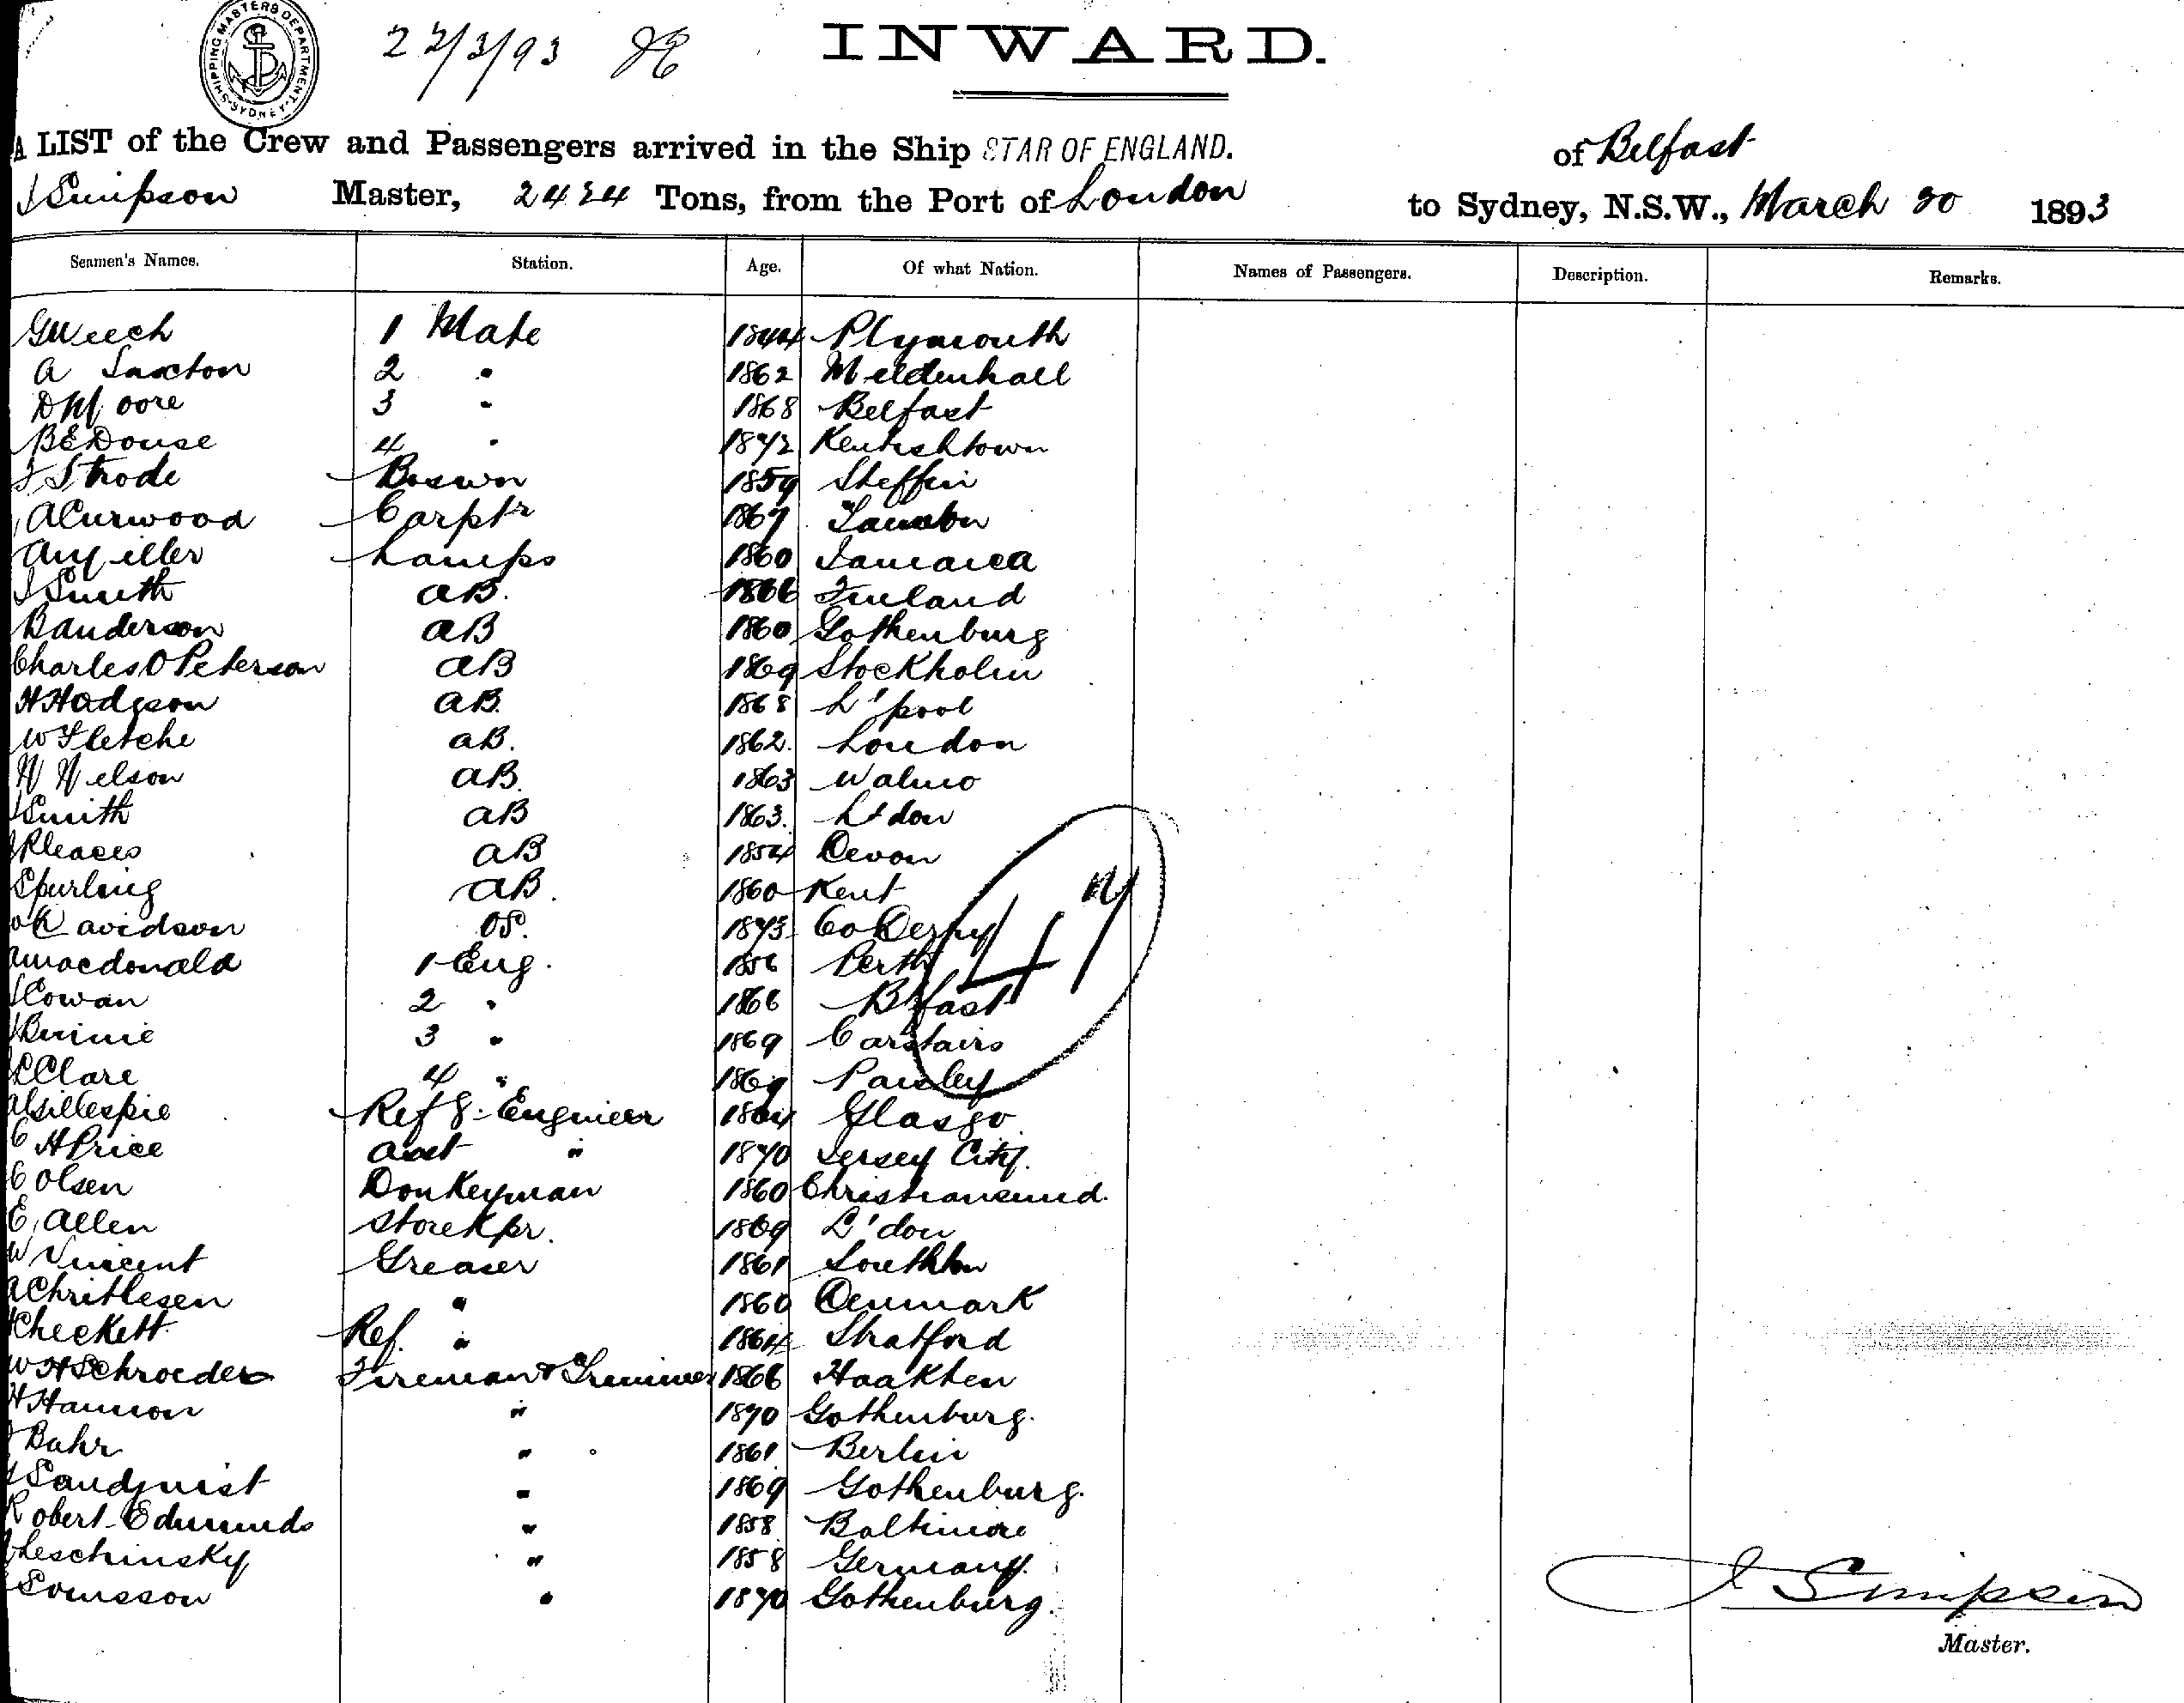 SHIPPING MASTERS DEPARTMENT SYDNEY
22/3/93
INWARD.
A LIST of the Crew and Passengers arrived in the Ship STAR OF ENGLAND. of Belfast
J Simpson Master, 2424 Tons, from the Port of London to Sydney, N.S.W., March 20 1893
Seamen's Names. Station. Age. Of what Nation. Names of Passengers. Description. Remarks.
G Weech 1 Mate 1844 Plymouth
A Saxton 2 " 1862 Mildenhall
D Moore 3 " 1868 Belfast
B E Douse 4 " 1872 Kentishtown
Strode Boswn 1859 Steffin
A Curwood Carptr 1867
A Miller Lamps 1860 Jamaica
J Smith AB. 1866 Finland
B Anderson AB 1860 Gothenburg
Charles O Peterson AB 1869 Stockholm
H Hodgson AB. 1868 L'pool
W Fletche AB. 1862. London
N Nelson AB. 1863 Walmo
J Smith AB 1863. L'don
AB 1854 Devon
Spurling AB. 1860 Kent
Davidson OS. 1873 Co Derry
A Macdonald 1 Eng. 1856 Perth
J Cowan 2 " 1866 B'fast
J Birnie 3 " 1869 Carstairs
Clare 4 " 1869 Paisley
A Gillespie Refg. Engineer 1864 Glasgo
C H Price Asst " 1870 Jersey City.
C Olsen Donkeyman 1860 Christiansund.
E. Allen StoreKpr. 1869 L'don
W Vincent Greaser 1861 Southton
A Chritlesen " 1860 Denmark
Checkett Ref. " 1864 Stratford
W H Schroeder Fireman & Trimmer 1866 Haakten
H Hannon " 1870 Gothenburg.
Bahr " 1861 Berlin
Sandquist " 1869 Gothenburg.
Robert Edmunds " 1858 Baltimore
Leschinsky " 1858 Germany.
Svensson " 1870 Gothenburg.
47
J Simpson
Master.